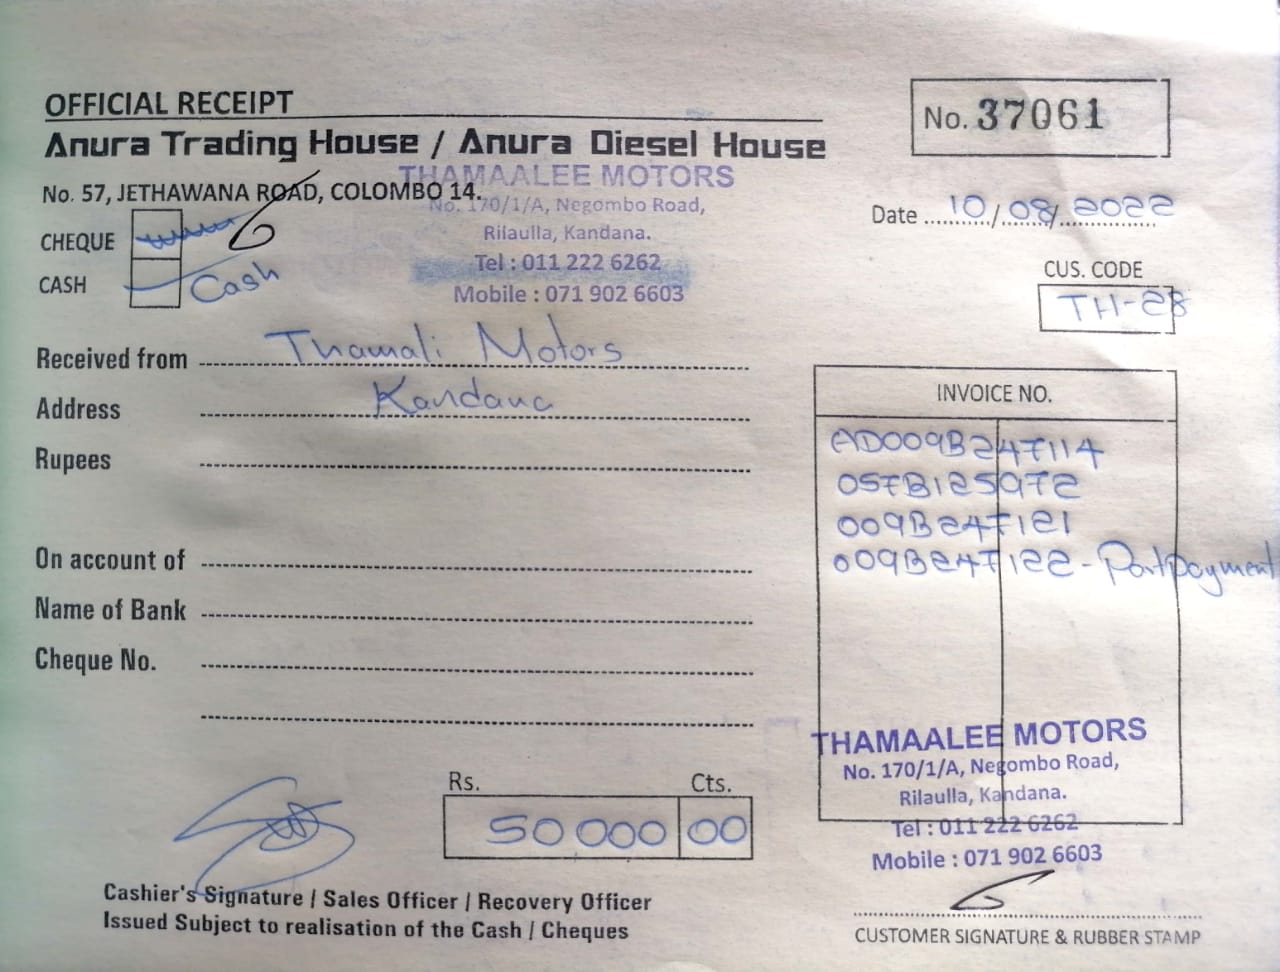 OFFICIAL RECEIPT
No. 37061
Anura Trading House / Anura Diesel House
THAMAALEE MOTORS
No. 57, JETHAWANA ROAD, COLOMBO 14.
No. 170/1/A, Negombo Road,
Date 10/08/2022
Rilaulla, Kandana.
CHEQUE
Tel : 011 222 6262
CASH Cash
Mobile : 071 902 6603
CUS. CODE
TH-28
Received from Thamali Motors
Address Kandana
Rupees
INVOICE NO.
AD009B247114
057B125972
009B247121
009B247122 - Partpayment
On account of
Name of Bank
Cheque No.
THAMAALEE MOTORS
No. 170/1/A, Negombo Road,
Rilaulla, Kandana.
Tel : 011 222 6262
Mobile : 071 902 6603
Rs. Cts.
50 000 00
Cashier's Signature / Sales Officer / Recovery Officer
Issued Subject to realisation of the Cash / Cheques
CUSTOMER SIGNATURE & RUBBER STAMP